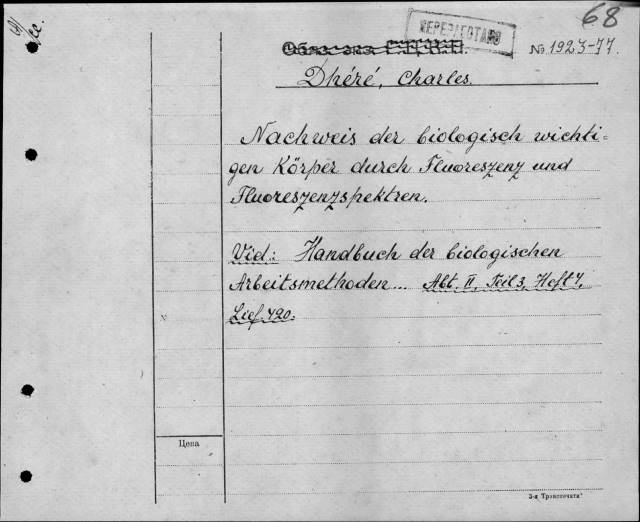 68
ПЕРЕПЛЕТАНО
№ 1923-77.
Dhéré, Charles.
Nachweis der biologisch wichti-
gen Körper durch Fluoreszenz und
Fluoreszenzspektren.
Vid.: Handbuch der biologischen
Arbeitsmethoden... Abt. II, Teil 3, Heft 4,
Lief. 420.
Цена
3-я Транспечать